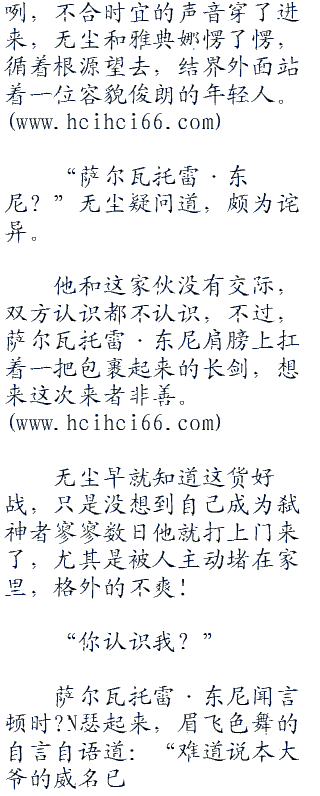 咧，不合时宜的声音穿了进
来，无尘和雅典娜愣了愣，
循着根源望去，结界外面站
着一位容貌俊朗的年轻人。
(www.hcihci66.com)
“萨尔瓦托雷·东
尼？”无尘疑问道，颇为诧
异。
他和这家伙没有交际，
双方认识都不认识，不过，
萨尔瓦托雷·东尼肩膀上扛
着一把包裹起来的长剑，想
来这次来者非善。
(www.hcihci66.com)
无尘早就知道这货好
战，只是没想到自己成为弑
神者寥寥数日他就打上门来
了，尤其是被人主动堵在家
里，格外的不爽！
“你认识我？”
萨尔瓦托雷·东尼闻言
顿时?N瑟起来，眉飞色舞的
自言自语道：“难道说本大
爷的威名已